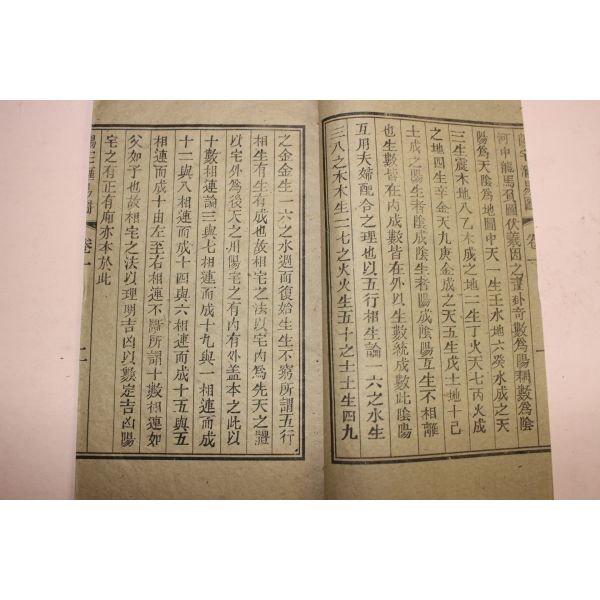 河中龍馬負圖伏羲因之畫卦奇數為陽耦數為陰
陽為天陰為地圖中天一生壬水地六癸水成之天
三生震木地八乙木成之地二生丁火天七丙火成
之地四生辛金天九庚金成之天五生戊土地十己
土成之陽生者陰成陰生者陽成陰陽互生不相離
也生數皆在內成數皆在外以生數統成數此陰陽
互用夫婦配合之理也以五行相生論一六之水生
三八之木木生二七之火火生五十之土土生四九
之金金生一六之水週而復始生生不窮所謂五行
相生有生有成也故相宅之法以宅內為先天之體
以宅外為後天之用陽宅之有內有外盖本之此以
十數相連論三與七相連而成十九與一相連而成
十二與八相連而成十四與六相連而成十五與五
相連而成十由左至右相連不斷所謂十數相連如
父如子也故相宅之法以理明吉凶以數定吉凶陽
宅之有正有廂亦本於此
卷一
一
卷一
二